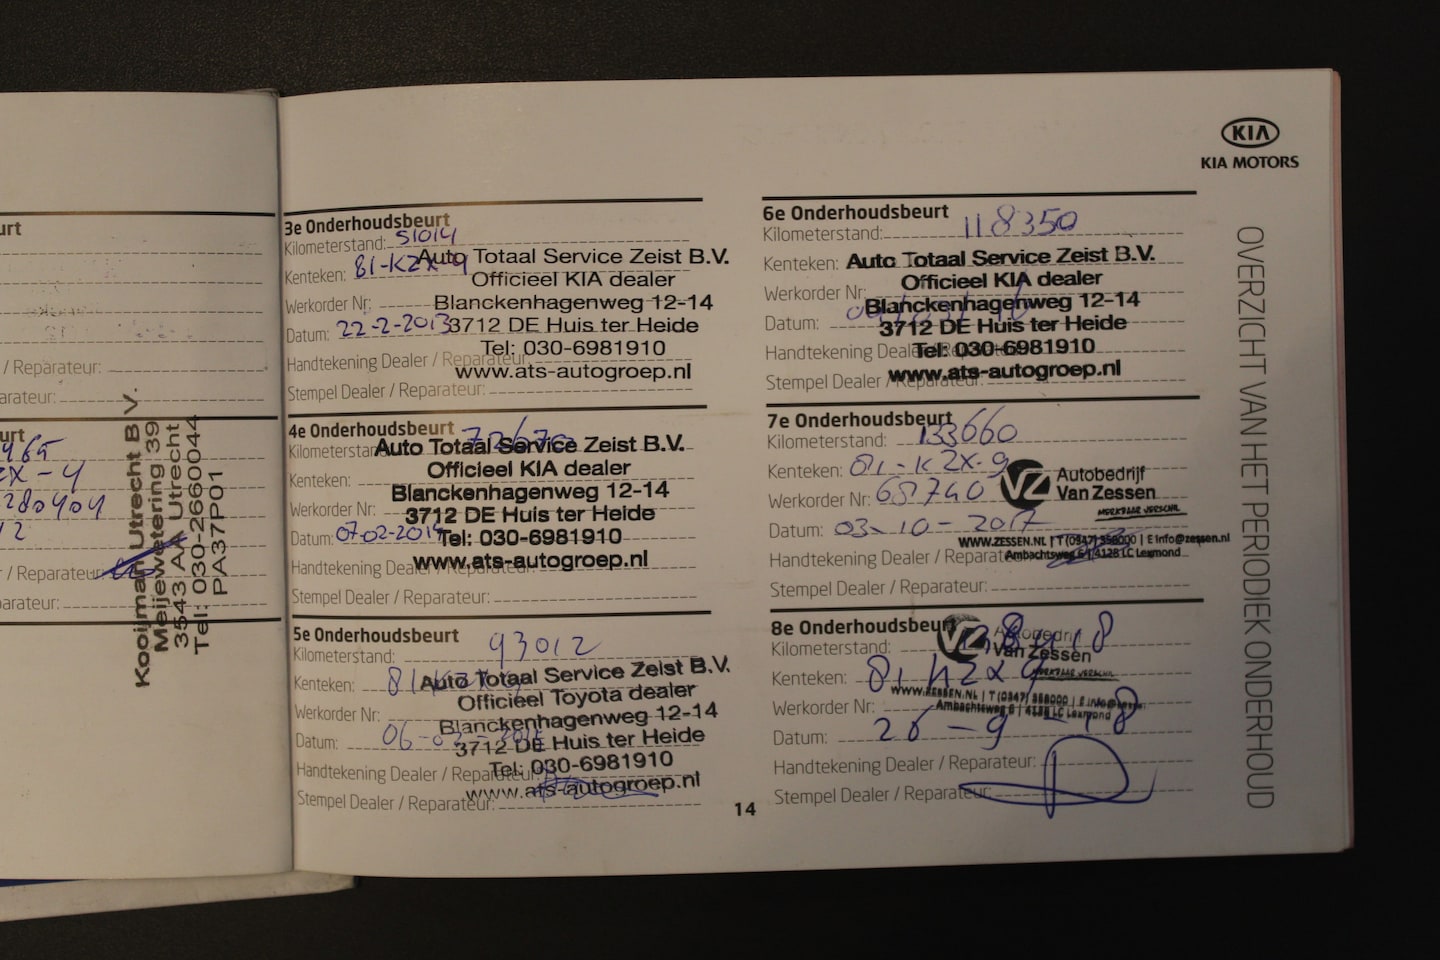 urt
/ Reparateur:
arateur:
urt
465
ZX-4
280404
12
/ Reparateur:
arateur:
Kooijman Utrecht B.V.
Meijewetering 39
3543 AA Utrecht
Tel: 030-2660044
PA37P01
3e Onderhoudsbeurt
Kilometerstand: 51014
Kenteken: 81-KZX-9
Werkorder Nr:
Datum: 22-2-2013
Handtekening Dealer / Reparateur:
Stempel Dealer / Reparateur:
Auto Totaal Service Zeist B.V.
Officieel KIA dealer
Blanckenhagenweg 12-14
3712 DE Huis ter Heide
Tel: 030-6981910
www.ats-autogroep.nl
4e Onderhoudsbeurt
Kilometerstand: 72670
Kenteken:
Werkorder Nr:
Datum: 07-02-2014
Handtekening Dealer / Reparateur:
Stempel Dealer / Reparateur:
Auto Totaal Service Zeist B.V.
Officieel KIA dealer
Blanckenhagenweg 12-14
3712 DE Huis ter Heide
Tel: 030-6981910
www.ats-autogroep.nl
5e Onderhoudsbeurt
Kilometerstand: 93012
Kenteken: 81-KZX-9
Werkorder Nr:
Datum:
Handtekening Dealer / Reparateur:
Stempel Dealer / Reparateur:
Auto Totaal Service Zeist B.V.
Officieel Toyota dealer
Blanckenhagenweg 12-14
3712 DE Huis ter Heide
Tel: 030-6981910
www.ats-autogroep.nl
14
KIA
KIA MOTORS
6e Onderhoudsbeurt
Kilometerstand: 118350
Kenteken:
Werkorder Nr:
Datum:
Handtekening Dealer / Reparateur:
Stempel Dealer / Reparateur:
Auto Totaal Service Zeist B.V.
Officieel KIA dealer
Blanckenhagenweg 12-14
3712 DE Huis ter Heide
Tel: 030-6981910
www.ats-autogroep.nl
7e Onderhoudsbeurt
Kilometerstand: 133660
Kenteken: 81-KZX-9
Werkorder Nr: 65740
Datum: 03-10-2017
Handtekening Dealer / Reparateur:
Stempel Dealer / Reparateur:
VZ Autobedrijf
Van Zessen
MERKBAAR VERSCHIL
WWW.ZESSEN.NL | T (0347) 356000 | E info@zessen.nl
Ambachtsweg 6 | 4128 LC Lexmond
8e Onderhoudsbeurt
Kilometerstand:
Kenteken: 81 KZX 9
Werkorder Nr:
Datum: 26-9-18
Handtekening Dealer / Reparateur:
Stempel Dealer / Reparateur:
VZ Autobedrijf
Van Zessen
MERKBAAR VERSCHIL
WWW.ZESSEN.NL | T (0347) 356000 | E info@zessen
Ambachtsweg 6 | 4128 LC Lexmond
OVERZICHT VAN HET PERIODIEK ONDERHOUD